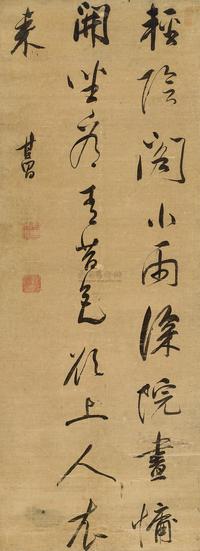 輕陰閣小雨深院晝慵
開坐看青苔色欲上人衣
来 其昌